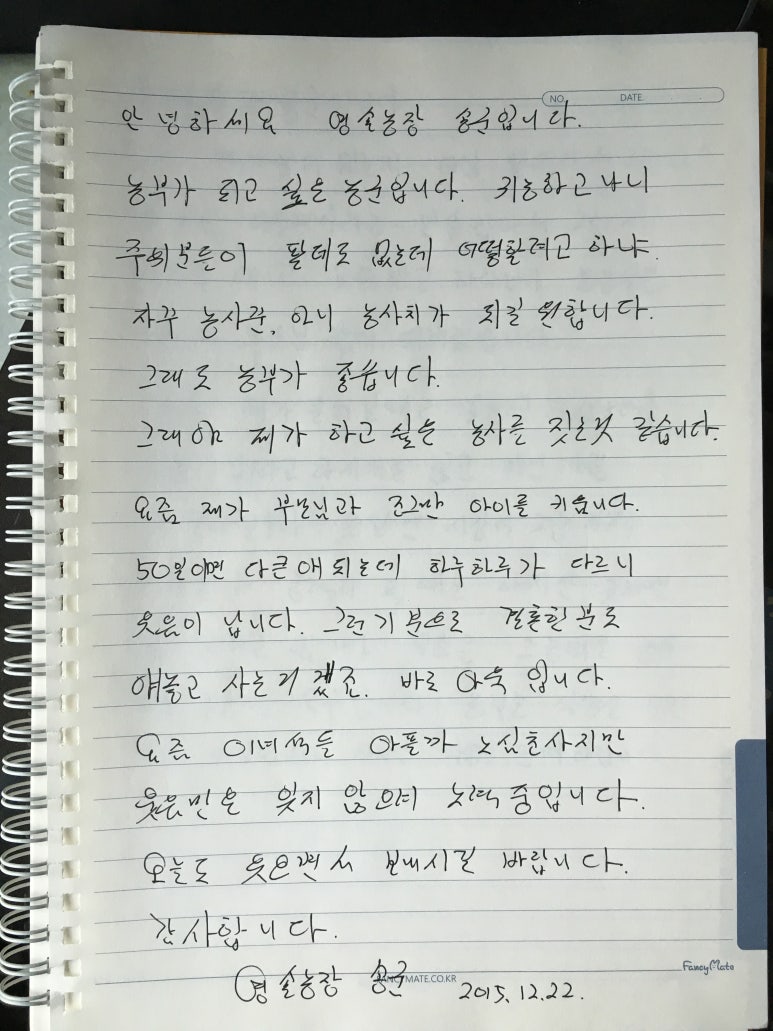 NO. DATE
안녕하세요 영솔농장 송군입니다.
농부가 되고 싶은 농군입니다. 귀농하고 나니
주위분들이 팔데도 없는데 어떻할려고 하냐.
자꾸 농사꾼, 아니 농사치가 되길 원합니다.
그래도 농부가 좋습니다.
그래야 제가 하고 싶은 농사를 짓는것 같습니다.
요즘 제가 부모님과 조그만 아이를 키웁니다.
50일이면 다큰애 되는데 하루하루가 다르니
웃음이 납니다. 그런기분으로 결혼한분도
얘놓고 사는거 겠죠. 바로 아욱 입니다.
요즘 이녀석들 아플까 노심초사지만
웃음만은 잊지 않으며 노력중입니다.
오늘도 웃으면서 보내시길 바랍니다.
감사합니다.
영솔농장 송군 2015.12.22.
MATE.CO.KR
FancyMate